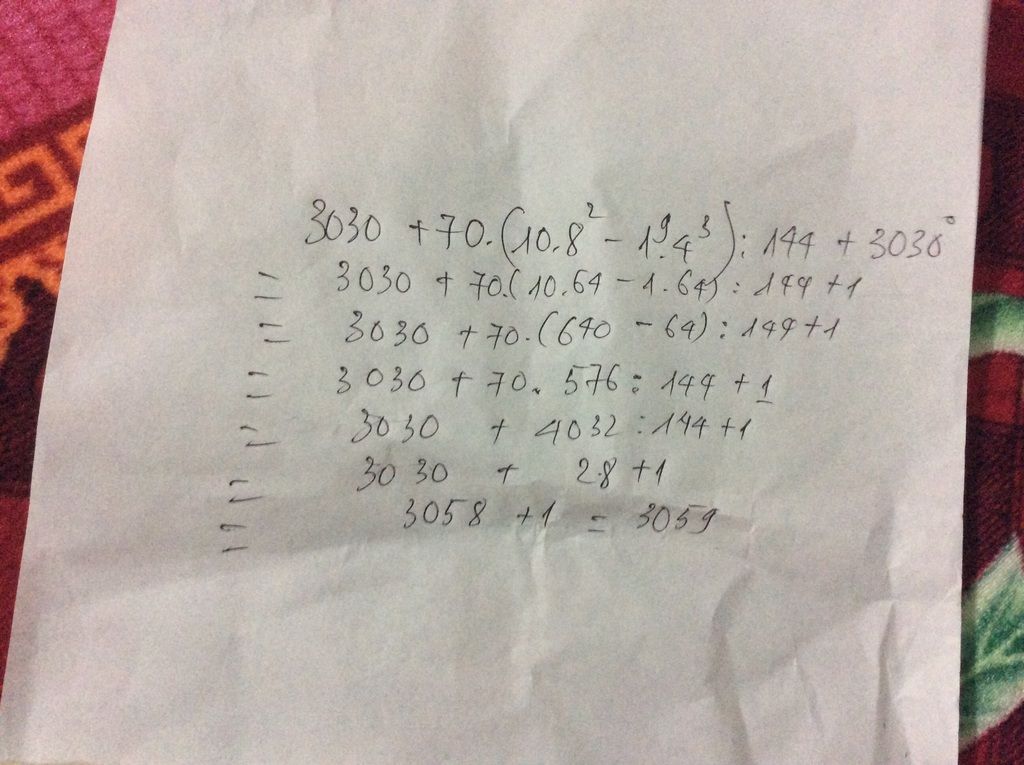 3030 + 70.(10.8² - 1⁹.4³) : 144 + 3030⁰
= 3030 + 70.(10.64 - 1.64) : 144 + 1
= 3030 + 70.(640 - 64) : 144 + 1
= 3030 + 70. 576 : 144 + 1
= 3030 + 4032 : 144 + 1
= 3030 + 28 + 1
= 3058 + 1 = 3059